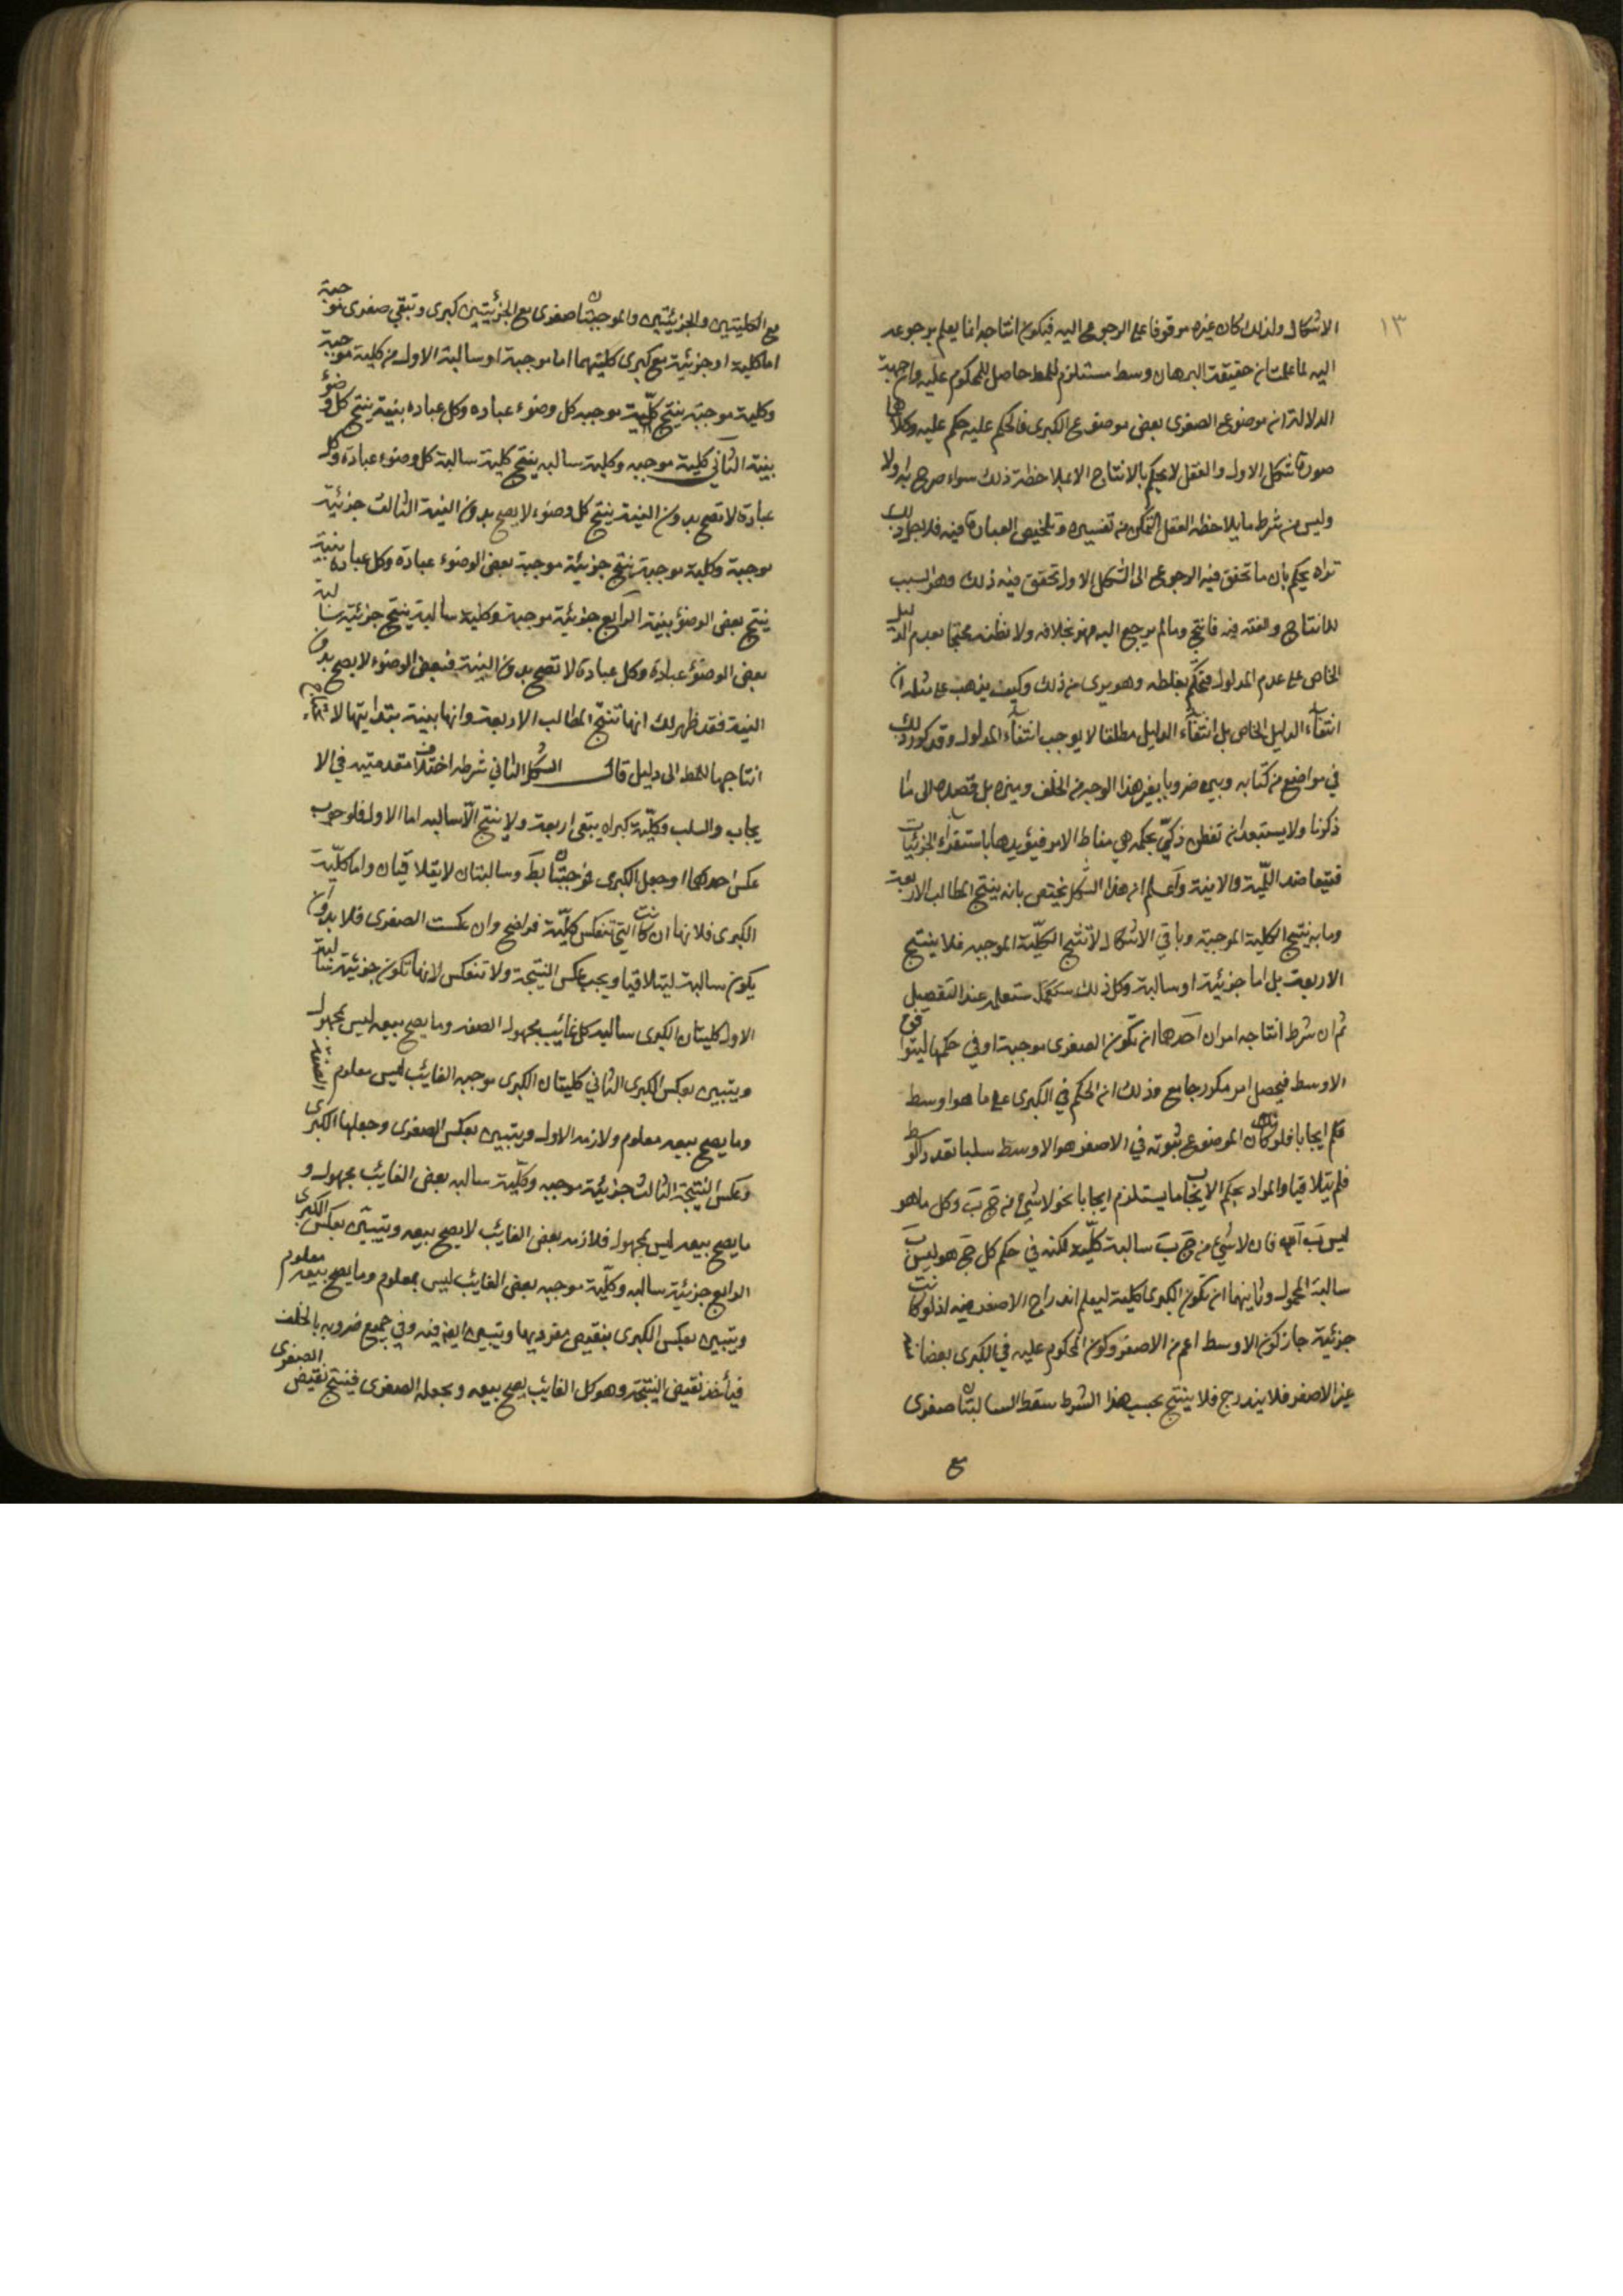 ١٣
الاشكال ولذلك كان غيره موقوفا على الرجوع اليه فيكون انتاجه انما يعلم برجوعه
اليه لما علمت ان حقيقة البرهان وسط مستلزم للمط حاصل للمحكوم عليه وان جهة
الدلالة ان موضوع الصغرى بعض موضوع الكبرى فالحكم عليه حكم عليه وكلاهما
صورة شكل الاول والعقل لا يحكم بالانتاج الا بملاحظة ذلك سواء صرح به او لا
وليس من شرط ما يلاحظه العقل التمكن من تفسيره وتلخيص العبارة فيه فلا ذلك
تراه يحكم بان ما تحقق فيه الرجوع الى الشكل الاول تحقق فيه ذلك وهو السبب
للانتاج فيه فانتج وما لم يرجع اليه فهو بخلافه ولا نظنه محتجا بعدم الدليل
الخاص على عدم المدلول فتحكم بغلطه وهو برى من ذلك وكيف يذهب على مثله ان
انتفاء الدليل الخاص بل انتفاء الدليل مطلقا لا يوجب انتفاء المدلول وقد كرر ذلك
في مواضع من كتابه وبين ضروبا بغير هذا الوجه من الخلف وغيره بل قصده الى ما
ذكرنا ولا يستبعد ان تفطن ذكي بحكمة هي مناط الامر فيؤيدها باستقراء الجزئيات
فيتعاضد اللمية والانية واعلم ان هذا الشكل يختص بانه ينتج المطالب الاربعة
وبانه ينتج الكلية الموجبة وباقي الاشكال لا تنتج الكلية الموجبة فلا ينتج
الاربعة بل اما جزئية او سالبة وكل ذلك ستعلمه عند التفصيل
ثم ان شرط انتاجه امران احدهما ان تكون الصغرى موجبة او في حكمها ليتوافق
الاوسط فيحصل امر مكرر جامع وذلك ان الحكم في الكبرى على ما هو اوسط
حكم ايجابا فلو كان الموضوع ثبوته في الاصغر هو الاوسط سلبا تعدد الاوسط
فلم يتلاقيا والمراد بحكم الايجاب ما يستلزم ايجابا نحو لا شيء من ج ب وكل ما هو
ليس ب ا فان لا شيء من ج ب سالبة كلية لكنه في حكم كل ج هو ليس ب
سالبة المحمول وثانيهما ان تكون الكبرى كلية ليعلم اندراج الاصغر فيه اذ لو كانت
جزئية جاز كون الاوسط اعم من الاصغر وكون المحكوم عليه في الكبرى بعضا منه
غير الاصغر فلا يندرج فلا ينتج بحسب هذا الشرط سقط السالبتان صغرى
مع
مع الكليتين والجزئيتين والموجبتان صغرى مع الجزئيتين كبرى وتبقى صغرى موجبة
اما كلية او جزئية مع كبرى كليتهما اما موجبة او سالبة الاول من كلية موجبة
وكلية موجبة ينتج كلية موجبه كل وضوء عباده وكل عباده بنية ينتج كل وضوء
بنية الثاني كلية موجبه وكلية سالبه ينتج كلية سالبة كل وضوء عبادة وكل
عبادة لا تصح بدون النية ينتج كل وضوء لا يصح بدون النية الثالث جزئية
موجبة وكلية موجبة ينتج جزئية موجبة بعض الوضوء عبادة وكل عبادة بنية
ينتج بعض الوضوء بنية الرابع جزئية موجبة وكلية سالبة ينتج جزئية سالبة
بعض الوضوء عبادة وكل عبادة لا تصح بدون النية فبعض الوضوء لا يصح بدون
النية فقد ظهر لك انها تنتج المطالب الاربعة وانها بينة بذواتها لا
انتاجها للمط الى دليل قال الشكل الثاني شرطه اختلاف مقدمتيه في الا
يجاب والسلب وكلية كبراه يبقى اربعة ولا ينتج الا سالبه اما الاول فلوجوب
عكس احدهما وجعل الكبرى فموجبتان بط وسالبتان لا يتلاقيان واما كلية
الكبرى فلانها ان كانت التي تنعكس كلية فواضح وان عكست الصغرى فلا بد وان
يكون سالبة ليتلاقيا ويجب عكس النتيجة ولا تنعكس لانها تكون جزئية سالبة
الاول كليتان الكبرى سالبه كل غائب مجهول الصفة وما يصح بيعه ليس بمجهول الصفة
ويتبين بعكس الكبرى الثاني كليتان الكبرى موجبه الغائب ليس معلوم الصفة
وما يصح بيعه معلوم ولازمه الاول ويتبين بعكس الصغرى وجعلها الكبرى
وعكس النتيجة الثالث جزئية موجبه وكلية سالبه بعض الغائب مجهول و
ما يصح بيعه ليس بمجهول فلازمه بعض الغائب لا يصح بيعه ويتبين بعكس الكبرى
الرابع جزئية سالبه وكلية موجبه بعض الغائب ليس بمعلوم وما يصح بيعه معلوم
ويتبين بعكس الكبرى بنقيض مفرديها ويتبين ايضا فيه وفي جميع ضروبه بالخلف
فيأخذ نقيض النتيجة وهو كل الغائب يصح بيعه ويجعله الصغرى فينتج نقيض الصغرى